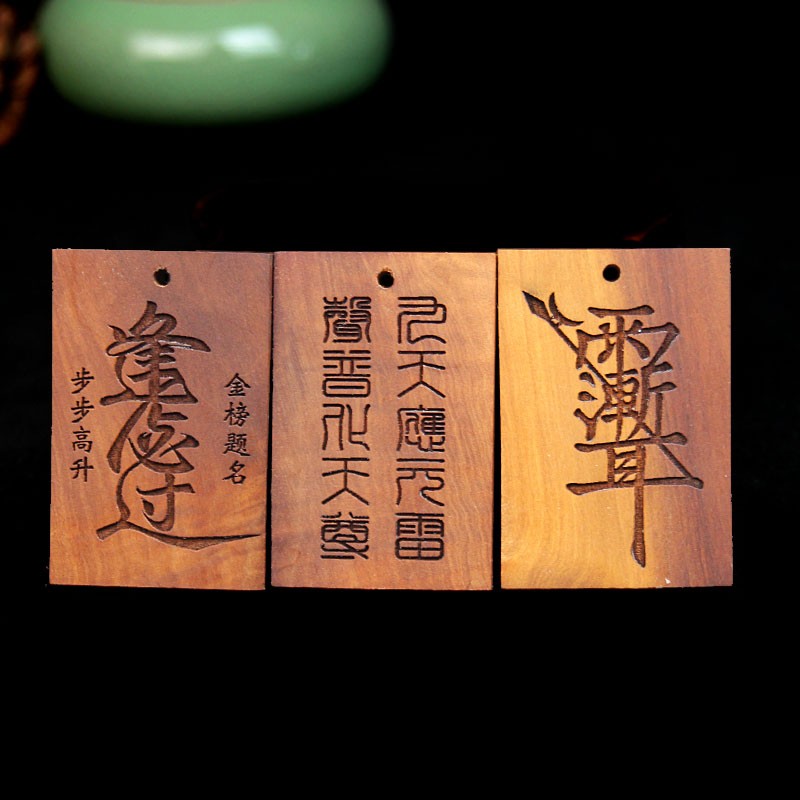 金榜题名
逢必过
步步高升
九天應元雷
聲普化天尊